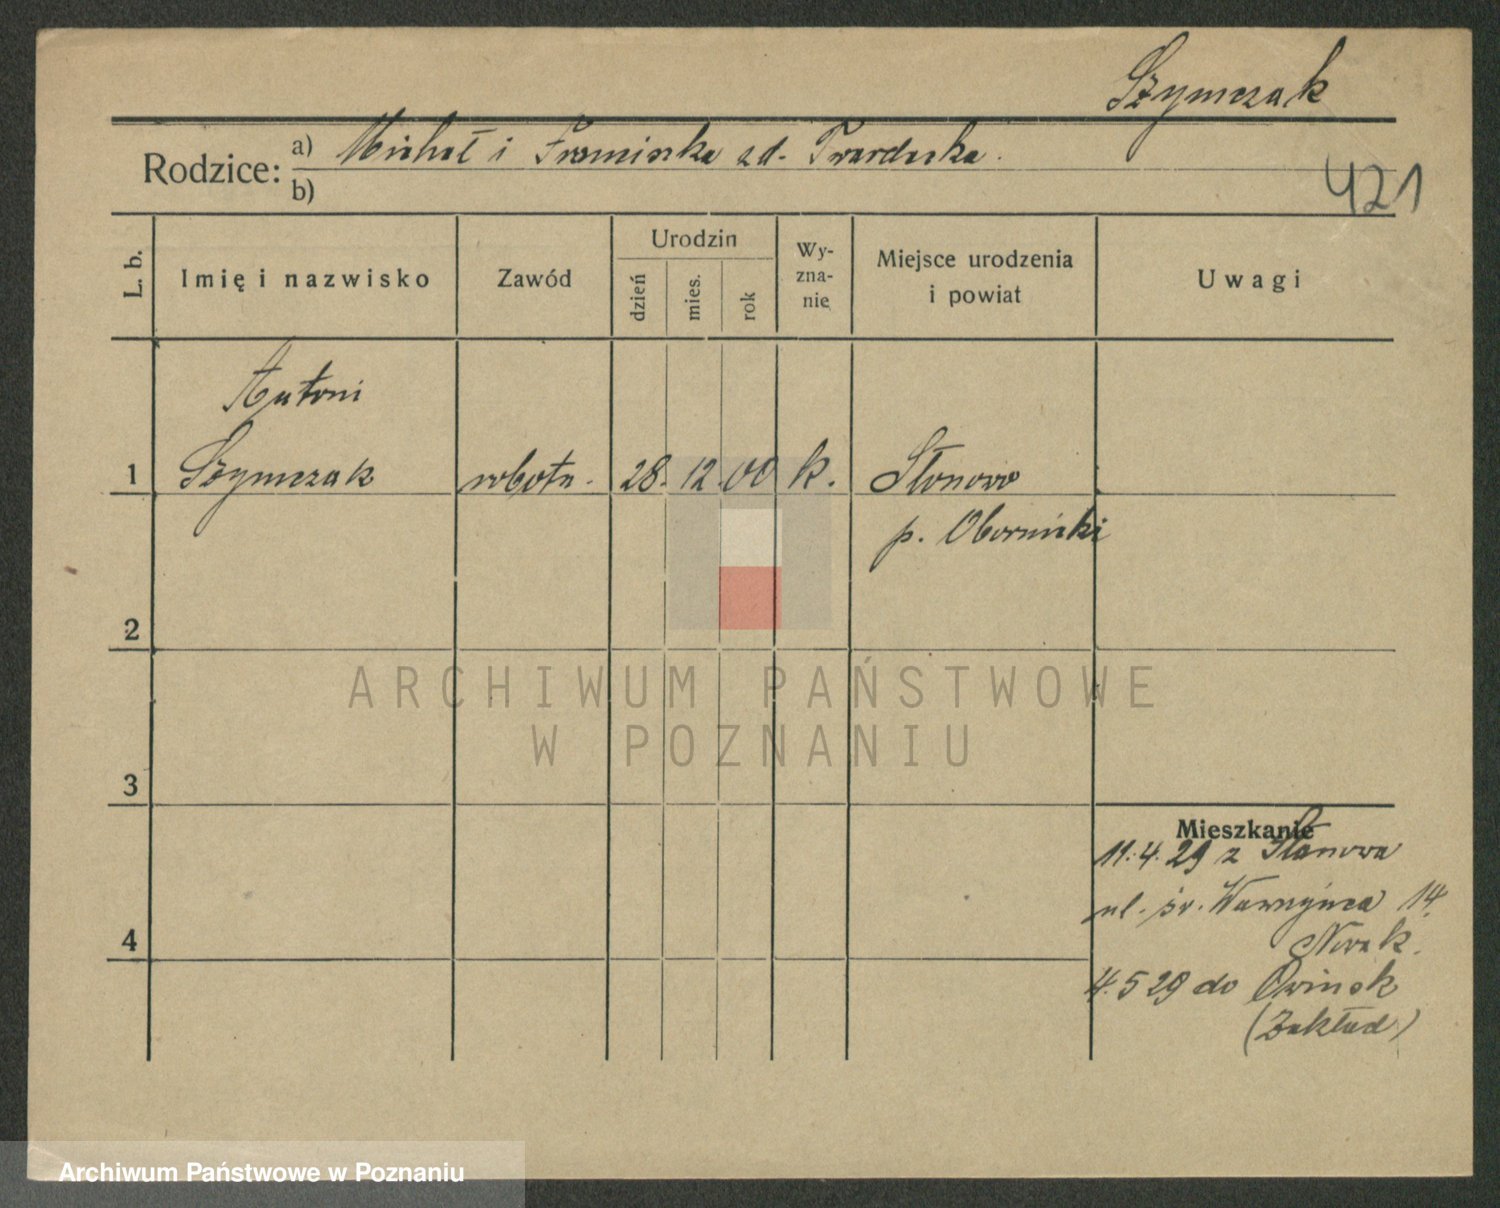 Szymczak
Rodzice: a) Michał i Franciszka zd. Twardeska.
b)
421
L. b.
Imię i nazwisko
Zawód
Urodzin
dzień
mies.
rok
Wy-
zna-
nie
Miejsce urodzenia
i powiat
Uwagi
Antoni
1 Szymczak robotn. 28. 12. 00 k. Słonowo
p. Oborniki
2
3
4
Mieszkanie
11.4.29 z Słonowa
ul. św. Wawrzyńca 14.
Nowak.
4.5 29 do Owinsk
(Zakład)
ARCHIWUM PAŃSTWOWE
W POZNANIU
Archiwum Państwowe w Poznaniu